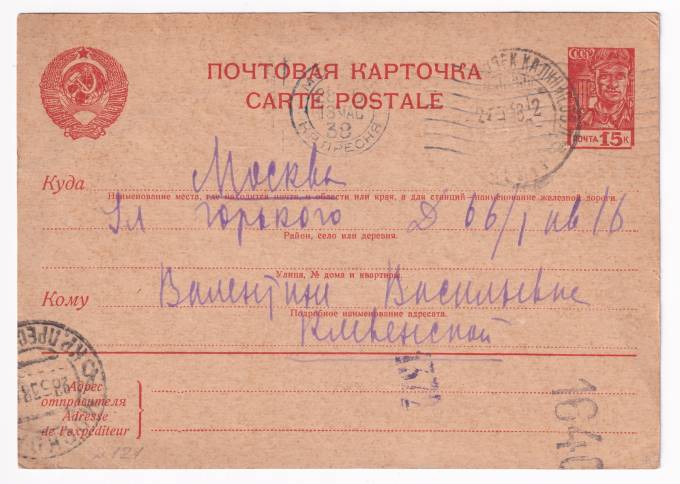 ПОЧТОВАЯ КАРТОЧКА
CARTE POSTALE
СССР
ПОЧТА 15 К
38
КР.ПРЕСНЯ
Куда Москва
Наименование места, где находится почта, и области или края, а для станций – наименование железной дороги.
Ул Горького Д 66/1 кв 16
Район, село или деревня.
Улица, № дома и квартиры.
Кому Валентине Васильевне
Подробное наименование адресата.
1640
Адрес
отправителя
Adresse
de l'expéditeur